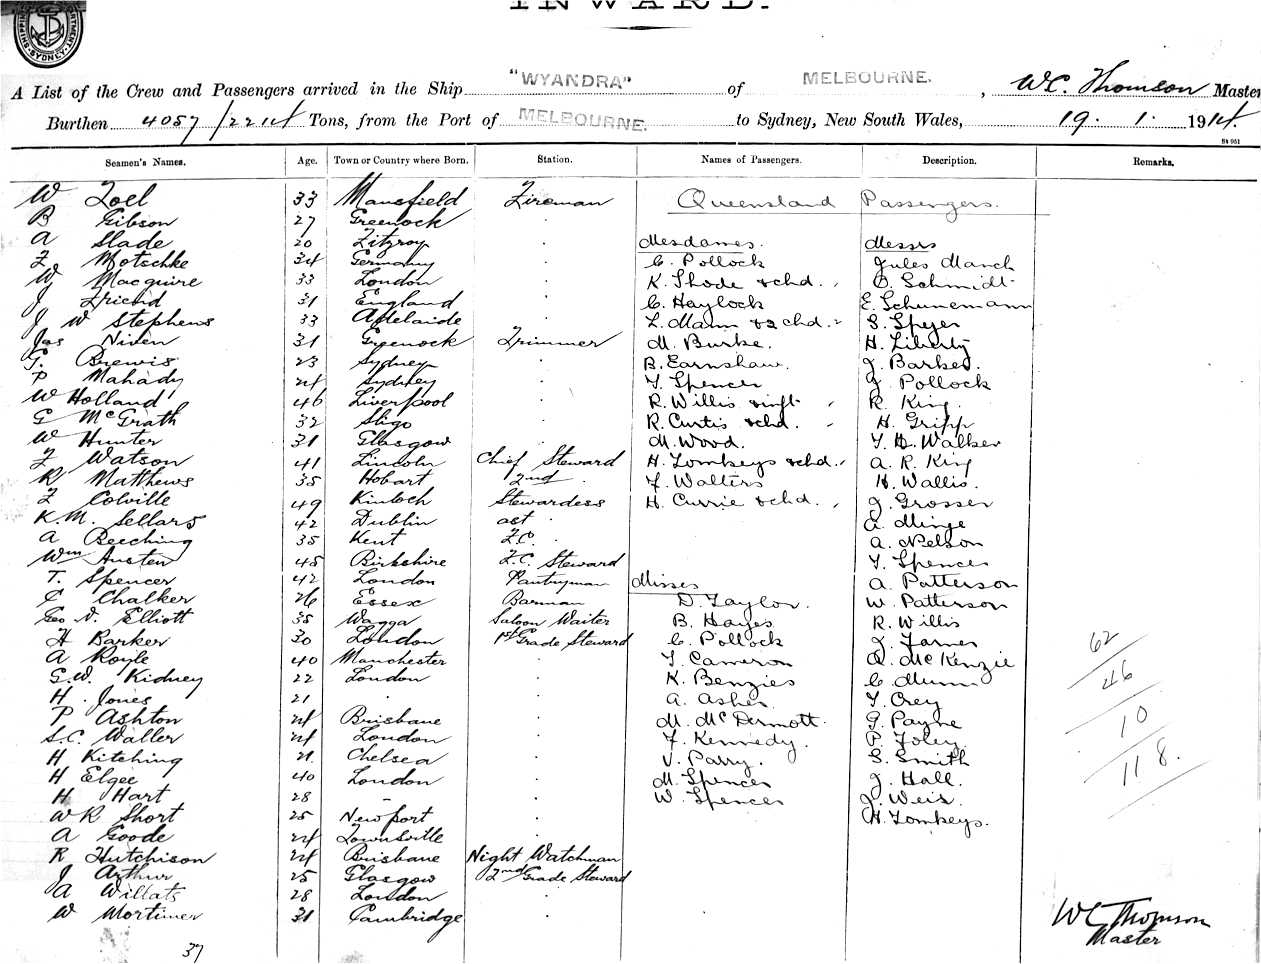 INWARD.
DEPARTMENT SYDNEY SHIPPING
A List of the Crew and Passengers arrived in the Ship "WYANDRA" of MELBOURNE. , W.C. Thomson Master
Burthen 4057/2214 Tons, from the Port of MELBOURNE. to Sydney, New South Wales, 19. 1. 1914.
B4 951
Seamen's Names. Age. Town or Country where Born. Station. Names of Passengers. Description. Remarks.
W 33 Mansfield Fireman Queensland Passengers.
B Gibson 27 Greenock
A Slade 20 Fitzroy . Mesdames. Messrs
F Motschke 34 Germany . C. Pollock Jules March
W Macguire 33 London . K. Thode & chd. O. Schmidt
J 31 England . C. Haylock E. Schunemann
J W Stephens 33 Adelaide . L. Mann & 2 chd. S. Speyer
Jas Niven 31 Greenock Trimmer M. Burke. H. Liberty
G. Brewis 23 Sydney . B. Earnshaw. J. Barker.
P Mahady 24 Sydney . T. Spencer J. Pollock
W Holland 46 Liverpool . R. Willis & inft R. King.
G McGrath 32 Sligo . R. Curtis & chd. H. Gripp
W Hunter 31 Glasgow . M. Wood. T. H. Walker
F Watson 41 Lincoln Chief Steward H. Tomkeys & chd. A. R. King
R Matthews 35 Hobart 2nd . F. Walters H. Wallis.
F Colville 49 Kinloch Stewardess H. Currie & chd. J. Grosser
K. M. Sellars 42 Dublin ast . A. Minge
A Beeching 35 Kent F.C. . A. Nelson
Wm Austen 45 Birkshire F.C. Steward T. Spencer
T. Spencer 42 London Pantryman Misses A. Patterson
C Chalker 26 Essex Barman D. Taylor. W. Patterson
Geo V. Elliott 35 Wagga Saloon Waiter B. Hayes R. Willis
H Barker 30 London 1st Grade Steward C. Pollock J. 62
A Royle 40 Manchester . T. Cameron McKenzie
G.W. Kidney 22 London . K. Benzies C. Munn 46
H Jones 21 . . A. Asher. T. Crey
P Ashton 24 Brisbane . M. McDermott. G. Payne 10
S.C. Waller 24 London . F. Kennedy. P. Foley.
H Kitching 21 Chelsea . V. Parry. S. Smith 118.
H Elgee 40 London . M. Spencer J. Hall.
H Hart 28 - . W. Spencer J. Weir.
W R Short 25 Newport . H. Tomkeys.
A Goode 24 Townsville .
R Hutchison 24 Brisbane Night Watchman
J Arthur 25 Glasgow 2nd Grade Steward
A Willats 28 London .
W Mortimer 31 Cambridge .
W C Thomson
Master
37